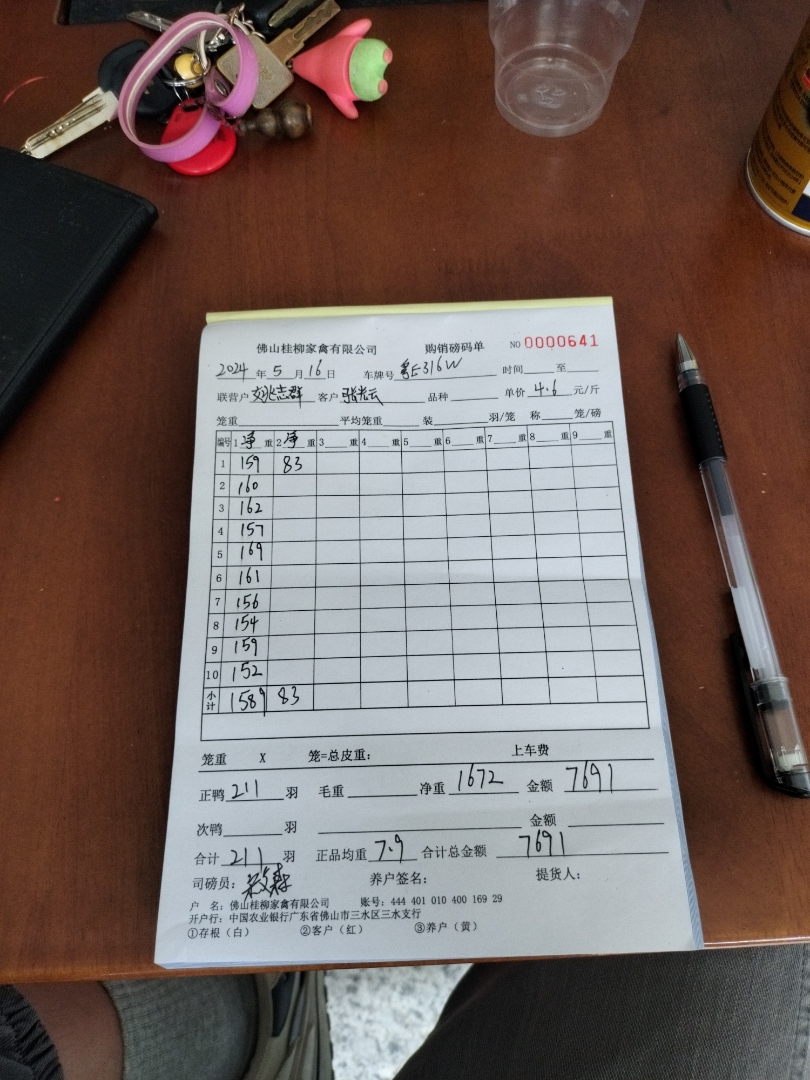 佛山桂柳家禽有限公司 购销磅码单 NO 0000641
2024年5月16日 车牌号 粤E316W 时间 至
联营户 刘兆志群 客户 张光云 品种 单价 4.6 元/斤
笼重 平均笼重 装 羽/笼 称 笼/磅
编号 1 净 重 2 净 重 3 重 4 重 5 重 6 重 7 重 8 重 9 重
1 159 83
2 160
3 162
4 157
5 169
6 161
7 156
8 154
9 159
10 152
小计 1589 83
笼重 X 笼=总皮重: 上车费
正鸭 211 羽 毛重 净重 1672 金额 7691
次鸭 羽 金额
合计 211 羽 正品均重 7.9 合计总金额 7691
司磅员: 养户签名: 提货人:
户 名: 佛山桂柳家禽有限公司 账号: 444 401 010 400 169 29
开户行: 中国农业银行广东省佛山市三水区三水支行
①存根(白) ②客户(红) ③养户(黄)